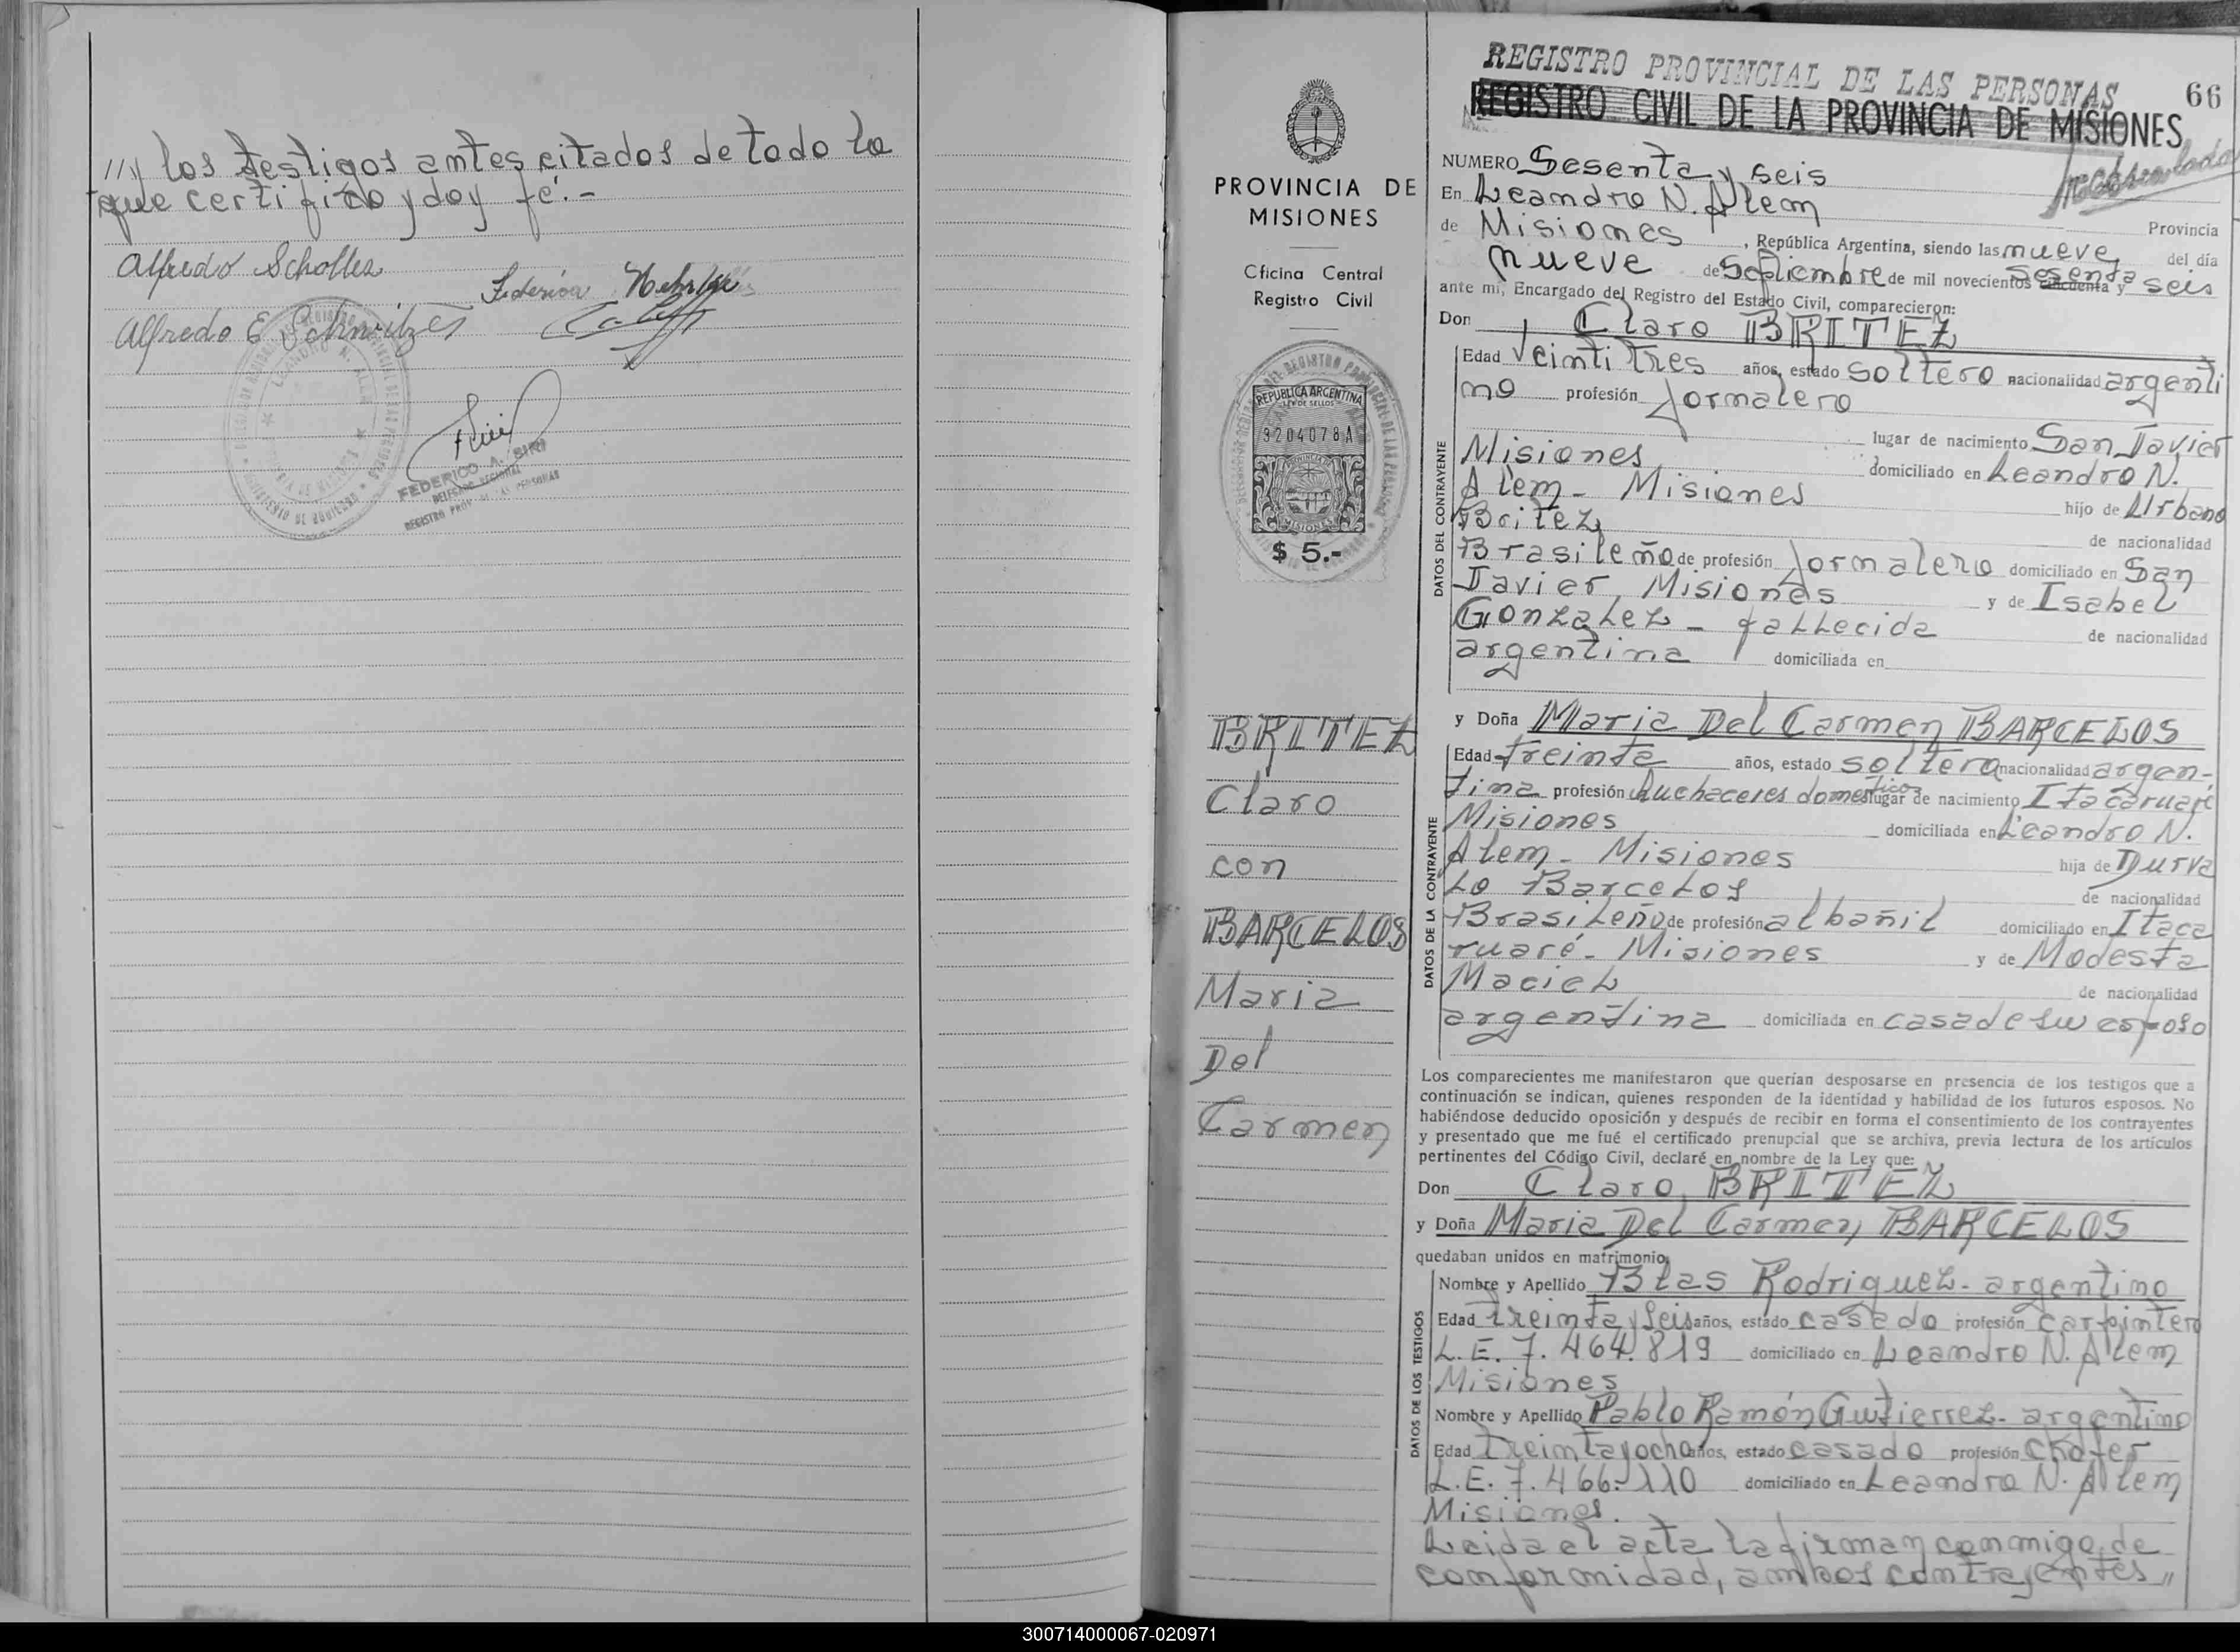 ///y los testigos antes citados de todo lo
que certifico y doy fé.-
Alfredo Scholles
Federico
Alfredo E Schwitzer
FEDERICO A. SIRI
DELEGADO REGIONAL
REGISTRO PROV. DE LAS PERSONAS
REGISTRO PROVINCIAL DE LAS PERSONAS
66
REGISTRO CIVIL DE LA PROVINCIA DE MISIONES
PROVINCIA DE
MISIONES
Oficina Central
Registro Civil
REPUBLICA ARGENTINA
LEY DE SELLOS
3204078A
MISIONES
$ 5.-
BRITEZ
Claro
con
BARCELOS
Maria
Del
Carmen
NUMERO Sesenta y seis
En Leandro N. Alem
Provincia
de Misiones, República Argentina, siendo las nueve, del día
nueve de Septiembre de mil novecientos cincuenta y sesenta y seis
ante mí, Encargado del Registro del Estado Civil, comparecieron:
Don Claro BRITEZ
DATOS DEL CONTRAYENTE
Edad Veintitres años, estado soltero nacionalidad argenti
no profesión Jornalero
lugar de nacimiento San Javier
Misiones domiciliado en Leandro N.
Alem - Misiones hijo de Urbano
Britez de nacionalidad
Brasileño de profesión Jornalero domiciliado en San
Javier, Misiones y de Isabel
Gonzalez - fallecida de nacionalidad
argentina domiciliada en
y Doña Maria Del Carmen BARCELOS
DATOS DE LA CONTRAYENTE
Edad treinta años, estado soltera nacionalidad argen-
tina profesión Quehaceres domesticos lugar de nacimiento Itacaruaré
Misiones domiciliada en Leandro N.
Alem - Misiones hija de Durva
lo Barcelos de nacionalidad
Brasileño de profesión albañil domiciliado en Itaca
ruaré - Misiones y de Modesta
Maciel de nacionalidad
argentina domiciliada en casa de su esposo
Los comparecientes me manifestaron que querían desposarse en presencia de los testigos que a
continuación se indican, quienes responden de la identidad y habilidad de los futuros esposos. No
habiéndose deducido oposición y después de recibir en forma el consentimiento de los contrayentes
y presentado que me fué el certificado prenupcial que se archiva, previa lectura de los artículos
pertinentes del Código Civil, declaré en nombre de la Ley que:
Don Claro, BRITEZ
y Doña Maria Del Carmen, BARCELOS
quedaban unidos en matrimonio.
DATOS DE LOS TESTIGOS
Nombre y Apellido Blas Rodriguez - argentino
Edad treinta y seis años, estado casado profesión carpintero
L.E. 7.464.819 domiciliado en Leandro N. Alem
Misiones
Nombre y Apellido Pablo Ramón Gutierrez - argentino
Edad treinta y ocho años, estado casado profesión chofer
L.E. 7.466.110 domiciliado en Leandro N. Alem
Misiones.
Leida el acta la firman conmigo de
conformidad, ambos contrayentes //
300714000067-020971